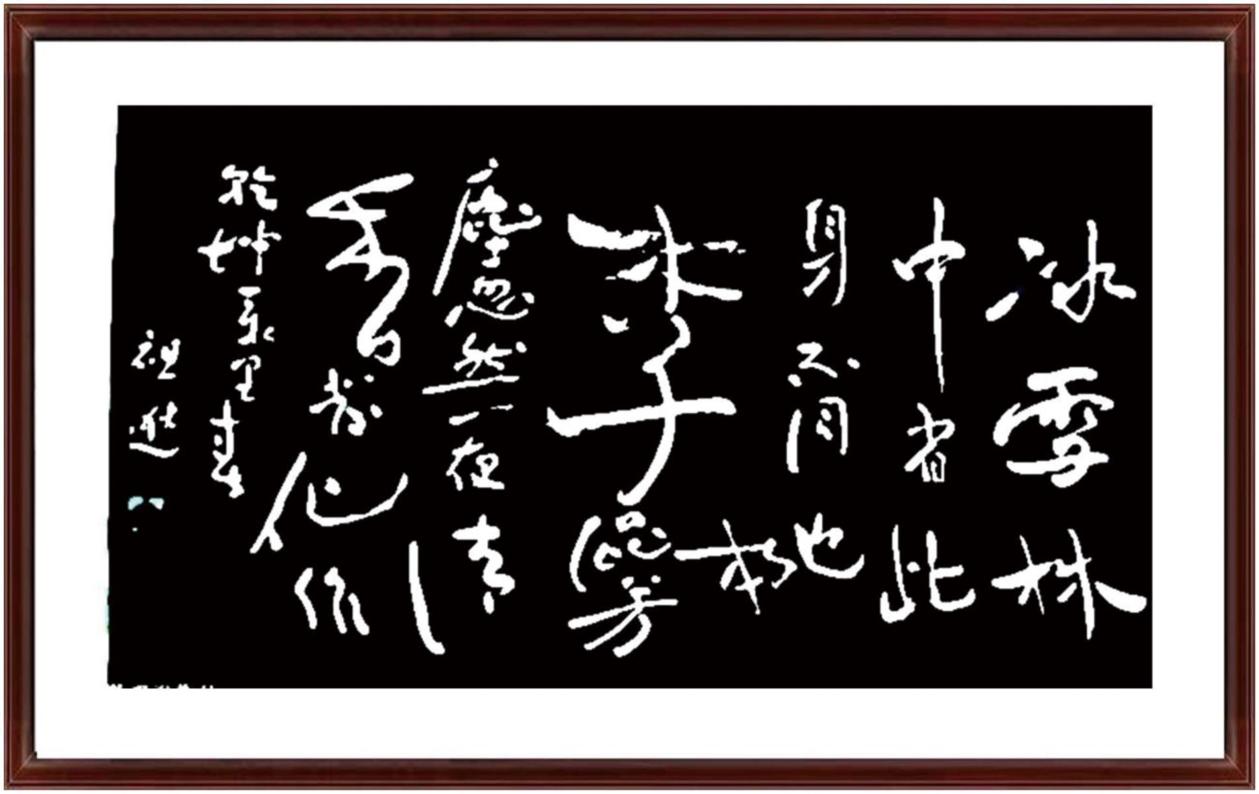 冰雪林
中著此
身不同桃
李混芳
塵忽然一夜清
香發化作
乾坤万里春
祖